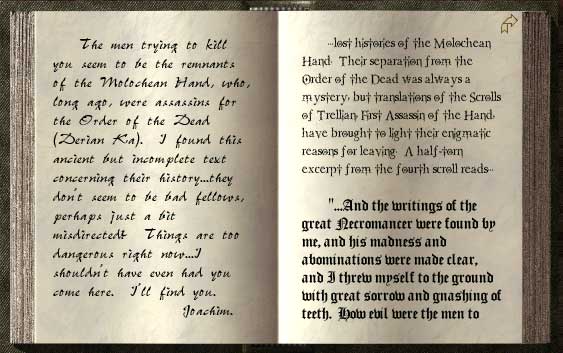 The men trying to kill
you seem to be the remnants
of the Molochean Hand, who,
long ago, were assassins for
the Order of the Dead
(Derian Ka). I found this
ancient but incomplete text
concerning their history...they
don't seem to be bad fellows,
perhaps just a bit
misdirected? Things are too
dangerous right now...I
shouldn't have even had you
come here. I'll find you.
Joachim.
...lost histories of the Molochean
Hand. Their separation from the
Order of the Dead was always a
mystery, but translations of the Scrolls
of Trellian, First Assassin of the Hand,
have brought to light their enigmatic
reasons for leaving. A half-torn
excerpt from the fourth scroll reads...
"...And the writings of the
great Necromancer were found by
me, and his madness and
abominations were made clear,
and I threw myself to the ground
with great sorrow and gnashing of
teeth. How evil were the men to